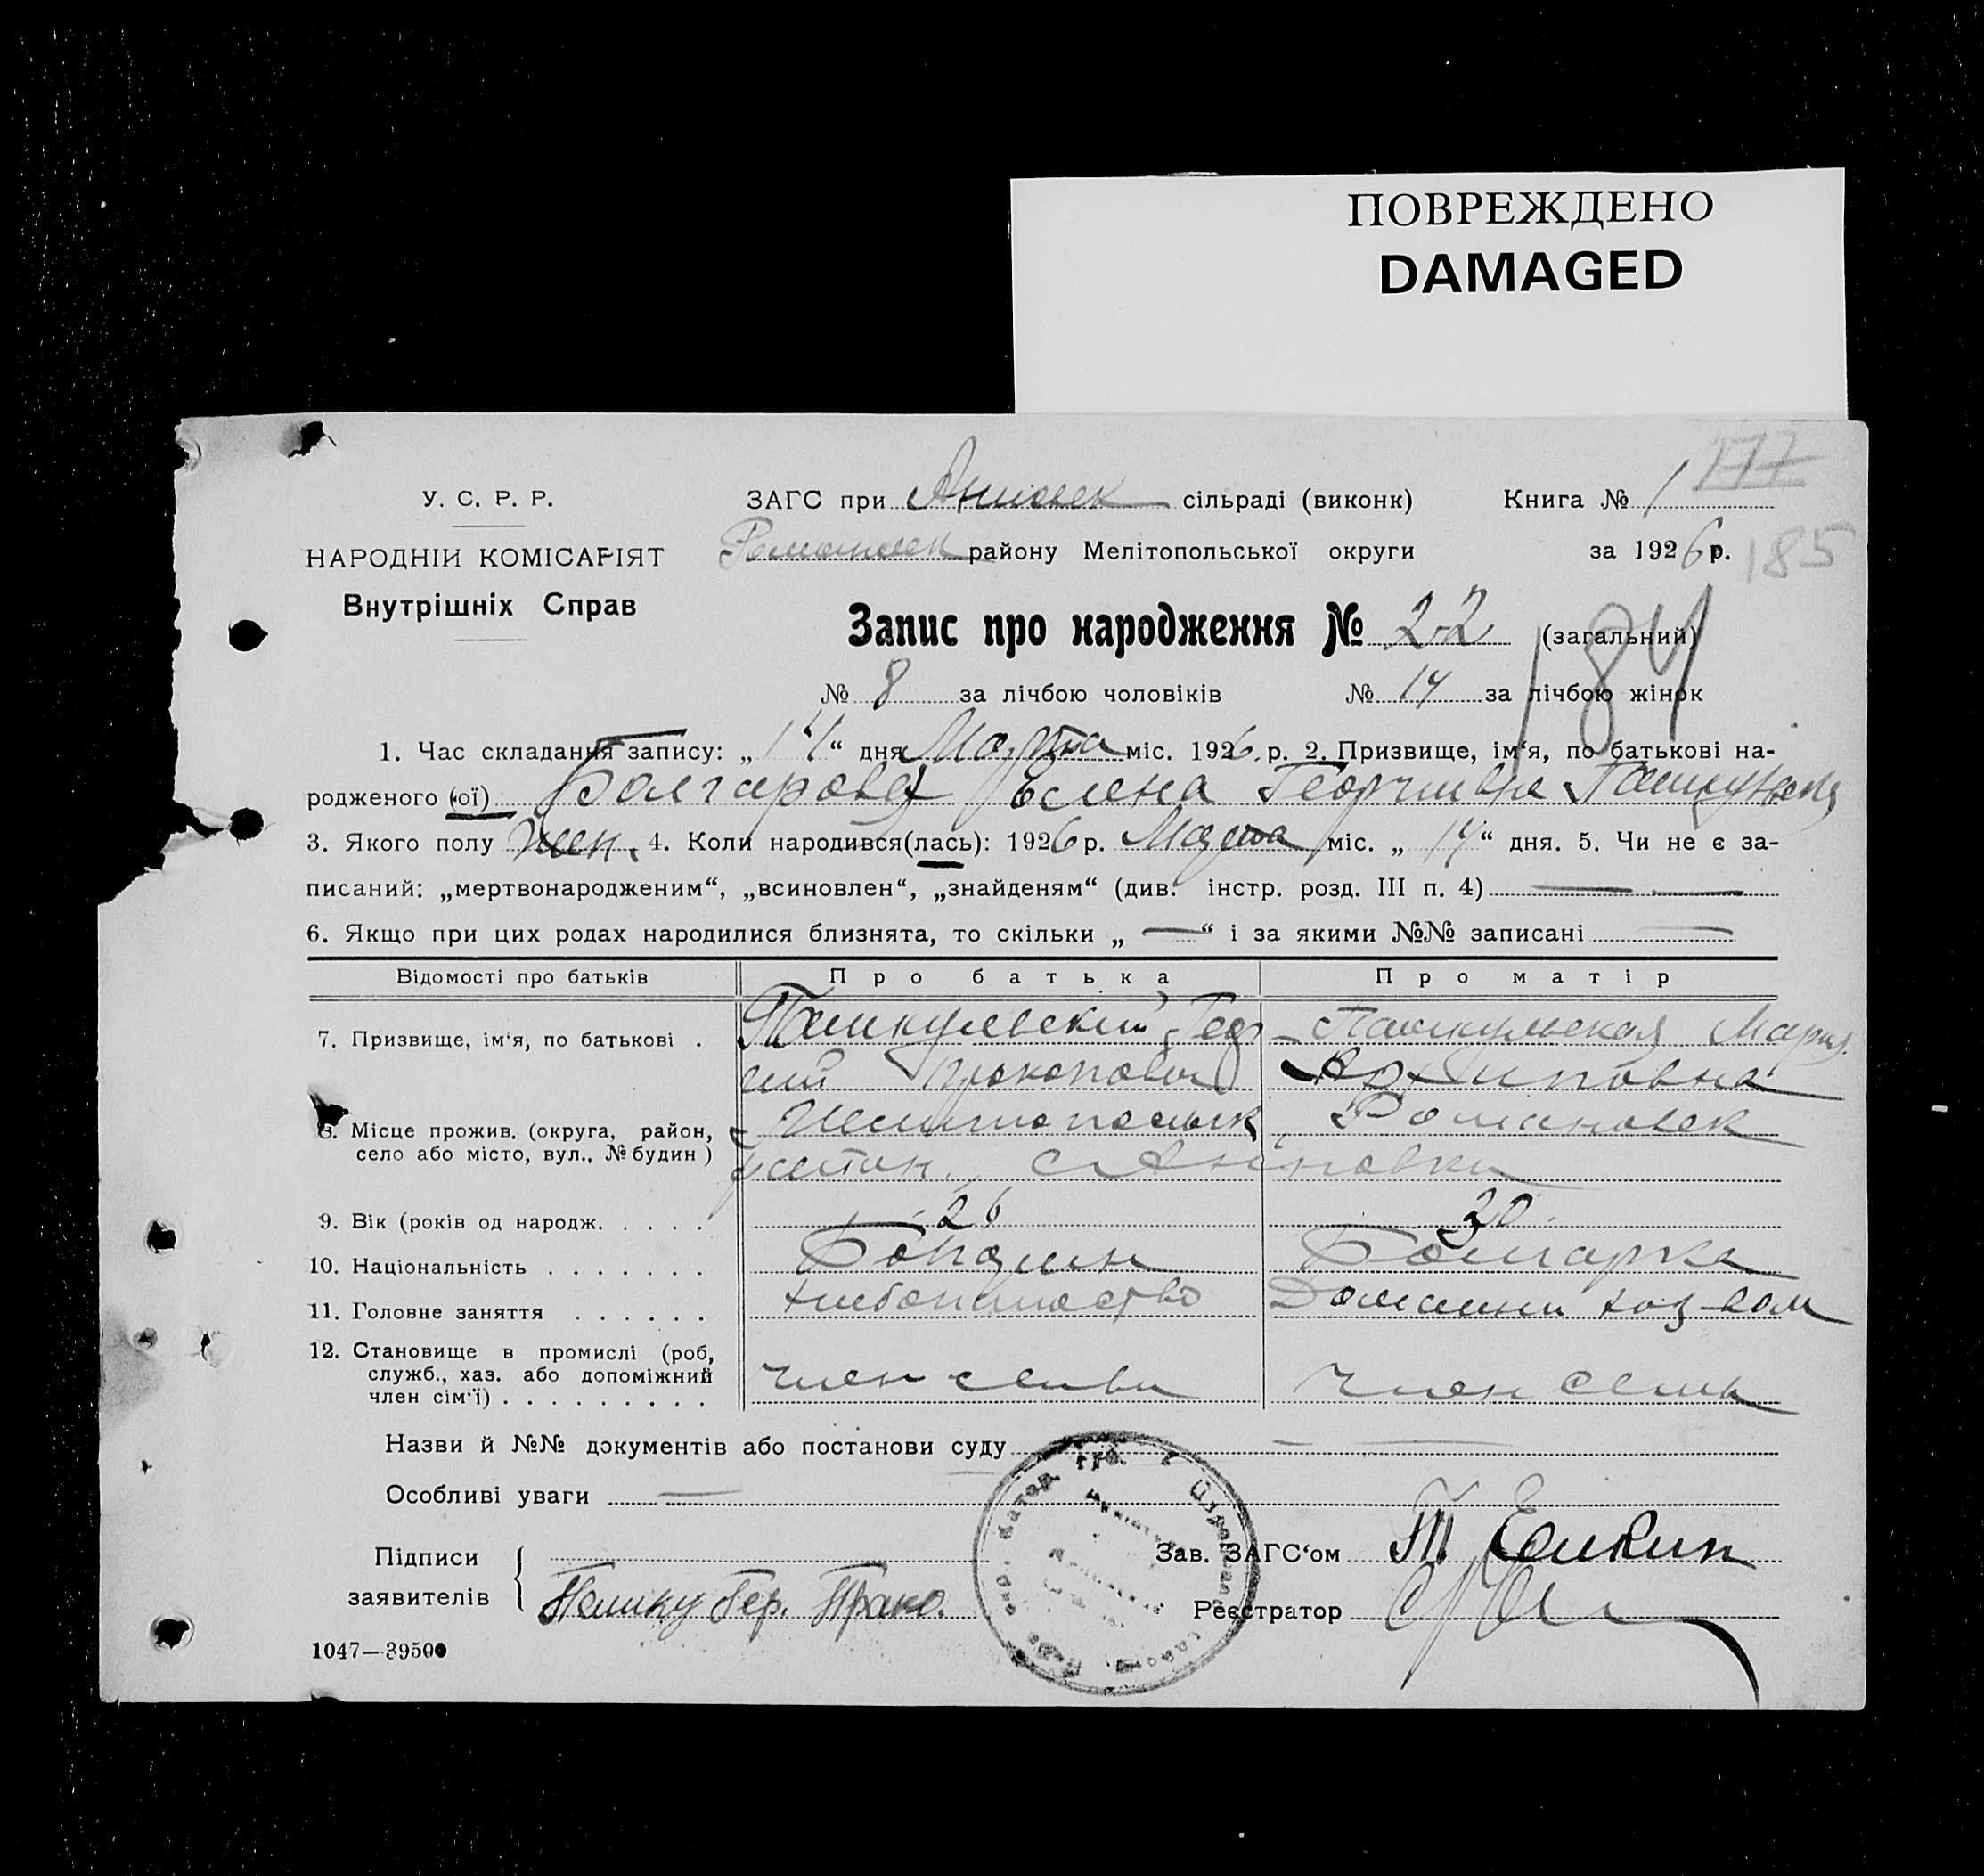 ПОВРЕЖДЕНО
DAMAGED
177
У. С. Р. Р. ЗАГС при сільраді (виконк) Книга № 1
района Мелітопольської округи за 1926 р. 185
НАРОДНІЙ КОМІСАРІЯТ
Внутрішніх Справ
Запис про народження № 22 (загальний)
184
№ 8 за лічбою чоловіків № 14 за лічбою жінок
1. Час складання запису: „14“ дня Марта міс. 1926 р. 2. Призвище, ім‘я, по батькові на-
родженого (ої) Болгарова Елена
3. Якого полу жен. 4. Коли народився(лась): 1926 р. Марта міс. „14“ дня. 5. Чи не є за-
писаний: „мертвонародженим“, „всиновлен“, „знайденям“ (див. інстр. розд. III п. 4)
6. Якщо при цих родах народилися близнята, то скільки „—“ і за якими №№ записані —
Відомості про батьків Про батька Про матір
7. Призвище, ім‘я, по батькові . Геор Мария
гий Прокопович Архиповна
8. Місце прожив. (округа, район, Романовск
село або місто, вул., № будин) с Анновки
9. Вік (років од народж. . . . . 26 30
10. Національність . . . . . . . Болгарка
11. Головне заняття . . . . . . хлебопашество
12. Становище в промислі (роб,
служб., хаз. або допоміжний член семьи член семьи
член сім‘ї) . . . . . . . . .
Назви й №№ документів або постанови суду —
Особливі уваги —
Підписи Зав. ЗАГС‘ом
заявителів Реєстратор
1047—39500